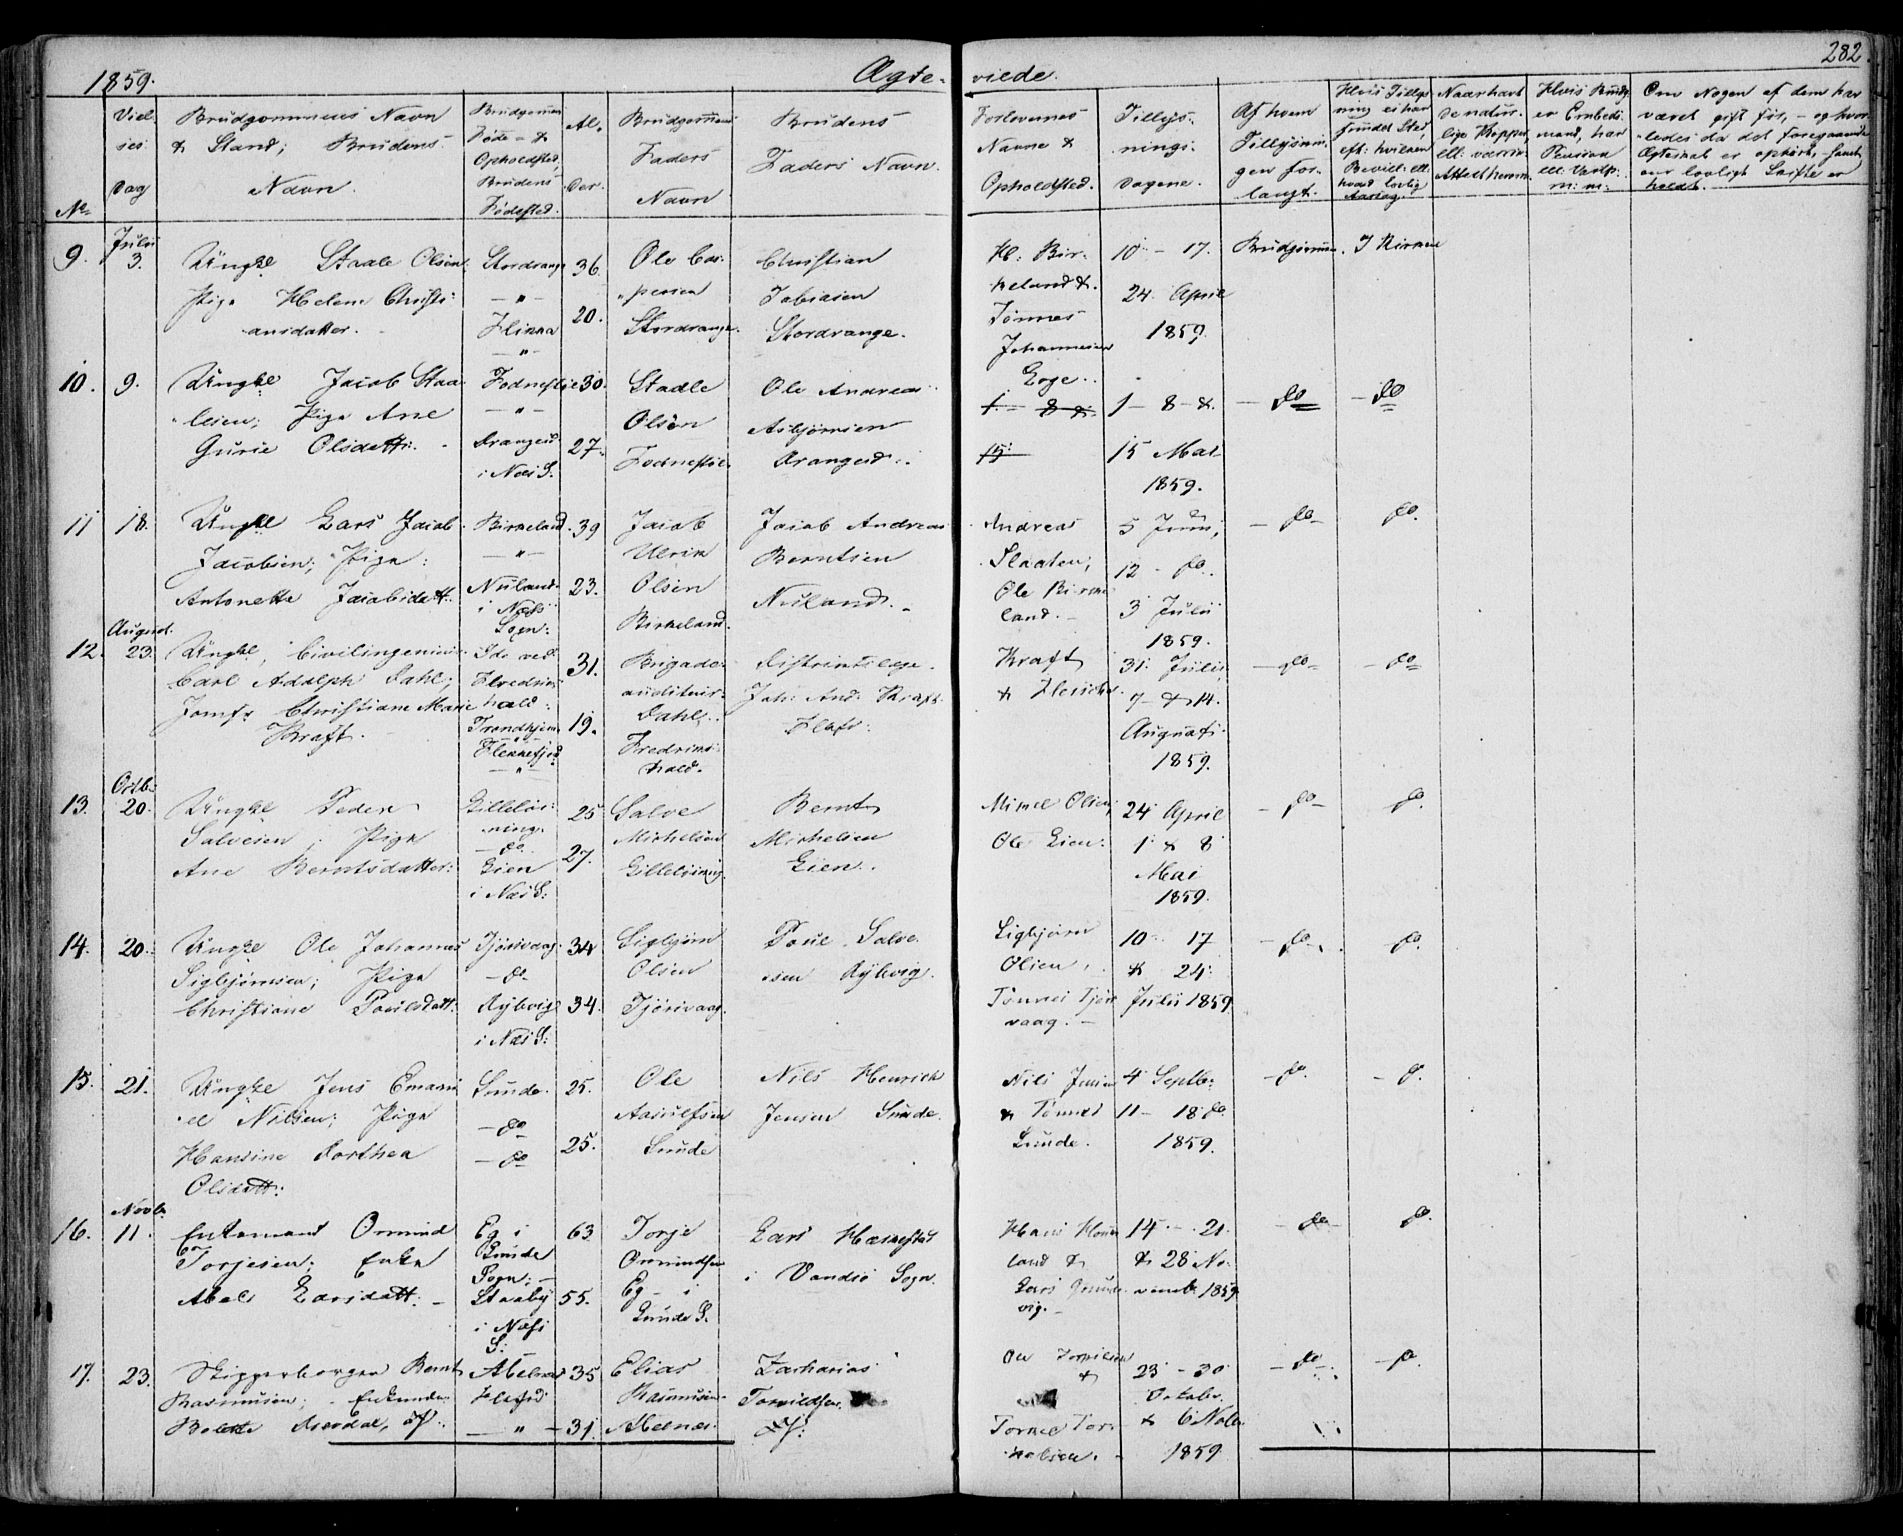 1859. Ægte- viede. 282.
No
Viel-
ses
Dag
Brudgommens Navn
& Stand; Brudens
Navn.
Brudgommens
Føde- &
Opholdsted,
Brudens
Fødested.
Al-
der.
Brudgommens
Faders
Navn
Brudens
Faders Navn.
Forlovernes
Navne &
Opholdsted.
Tillys-
nings-
dagene.
Af hvem
Tillysnin-
gen for-
langt.
Hvis Tillys-
ning ei har
fundet Sted,
eft: hvilken
Bevill: ell:
Naar havt
de natur-
lige Kopper,
ell: vaccin:
Attest herom.
Hvis Brudg.
er Embeds-
mand, har
Pension
ell:
m: m:
Om Nogen af dem har
været gift før, - og hvor-
ledes da det foregaaende
Ægteskab er ophørt, - samt
om lovligt Skifte er
holdt.
9. Julii 3.
Ungkl Staale Olsen
Pige Helene Christi-
ansdatter.
Stordrange
- " -
Flikka
- " -
36.
20.
Ole Cas-
persen
Stordrange.
Christian
Tobiasen
Stordrange.
H: Bir-
keland &.
Tønnes
Johannesen
Eege.
10 - 17.
24. April
1859.
Brudgommen. I Kirken
10. 9.
Ungkl Jacob Staa-
lesen; Pige Ane
Gurie Olsdatt:.
Fodnestøe
- " -
Drangeid
i Næs S.
30.
27.
Staale
Olsen
Fodnestøe.
Ole Andreas
Asbjørnsen
Drangeid.
1. - 8 &.
15.
1 - 8 - &.
15 Mai
1859.
- do - do
11 18.
Ungkl Lars Jacob
Jacobsen; Pige
Antonette Jacobsdatt.
Birkeland.
- " -
Nuland
i Næs
Sogn:
39
23.
Jacob
Ulrik
Olsen
Birkeland.
Jacob Andreas
Berntsen
Nuland.
Andreas
Slaaten,
Ole Birke-
land.
5 Juni,
12 - do.
3 Julii
1859.
- do - do.
12. August. 23.
Ungkl, Civilingenieur
Carl Adolph Dahl;
Jomfr Christiane Marie
Kraft.
Ide ved
Fredriks-
hald.
Trondhjem
Flekkefjord
- " -
31.
19.
Brigade-
auditeur
Dahl,
Fredriks-
hald.
Districtslæge
Joh: And: Kraft
Flkfr:
Kraft
& Fleischer.
31. Julii,
7 - & 14.
August
1859.
- do - - do
13. Octb. 20.
Ungkl Peder
Salvesen; Pige
Ane Berntsdatter:
- do
Eien
i Næs S:
25
27.
Salve
Michelsen
Bernt
Michelsen
Eien.
Mikel Olsen,
Ole Eien:
24. April
1 & 8
Mai
1859.
- do - do.
14. 20.
Ungkl Ole Johannes
Sigbjørnsen; Pige
Christiane Poulsdatt:
Tjørsvaag
- do
Rykvig
i Næs S:
34
34.
Sigbjørn
Olsen
Tjørsvaag.
Poul Salve-
sen Rykvig.
Sigbjørn
Olsen,
Tønnes Tjørs-
vaag. -
10 - 17
& 24.
Julii 1859
- do - do.
15. 21.
Ungkl Jens Emanu-
el Nilsen; Pige
Hansine Dorthea
Olsdatt:
Sunde.
- do
- do
25.
25.
Ole
Aasulfsen
Sunde
Nils Henrich
Jensen Sunde.
Nils Jensen
& Tønnes
Sunde.
4. Septb.
11 - 18. do.
1859.
- do. - do.
16. Novb. 11.
Enkemand Ommund
Torjesen; Enke
Abele Larsdatt: -
Eg i
Sogn: -
Staaby
i Næs
S:
63
55.
Torje
Ommundsen
Eg - i
Lars Hæskestad
i Vandsø Sogn.
Hans
land &
Lars
vig. -
14 - 21.
& 28 No-
vembr 1859.
- do - do.
17. 23.
Skipperborger Bernt
Rasmusen; Enkemd.
Abelnes
Flkfjd
- " -
35
31.
Elias
Rasmusen
Abelnes.
Zacharias
Torkildsen
Ole Torkildsen
&
23 - 30
October
& 6 Nobr
1859.
- do - - do.